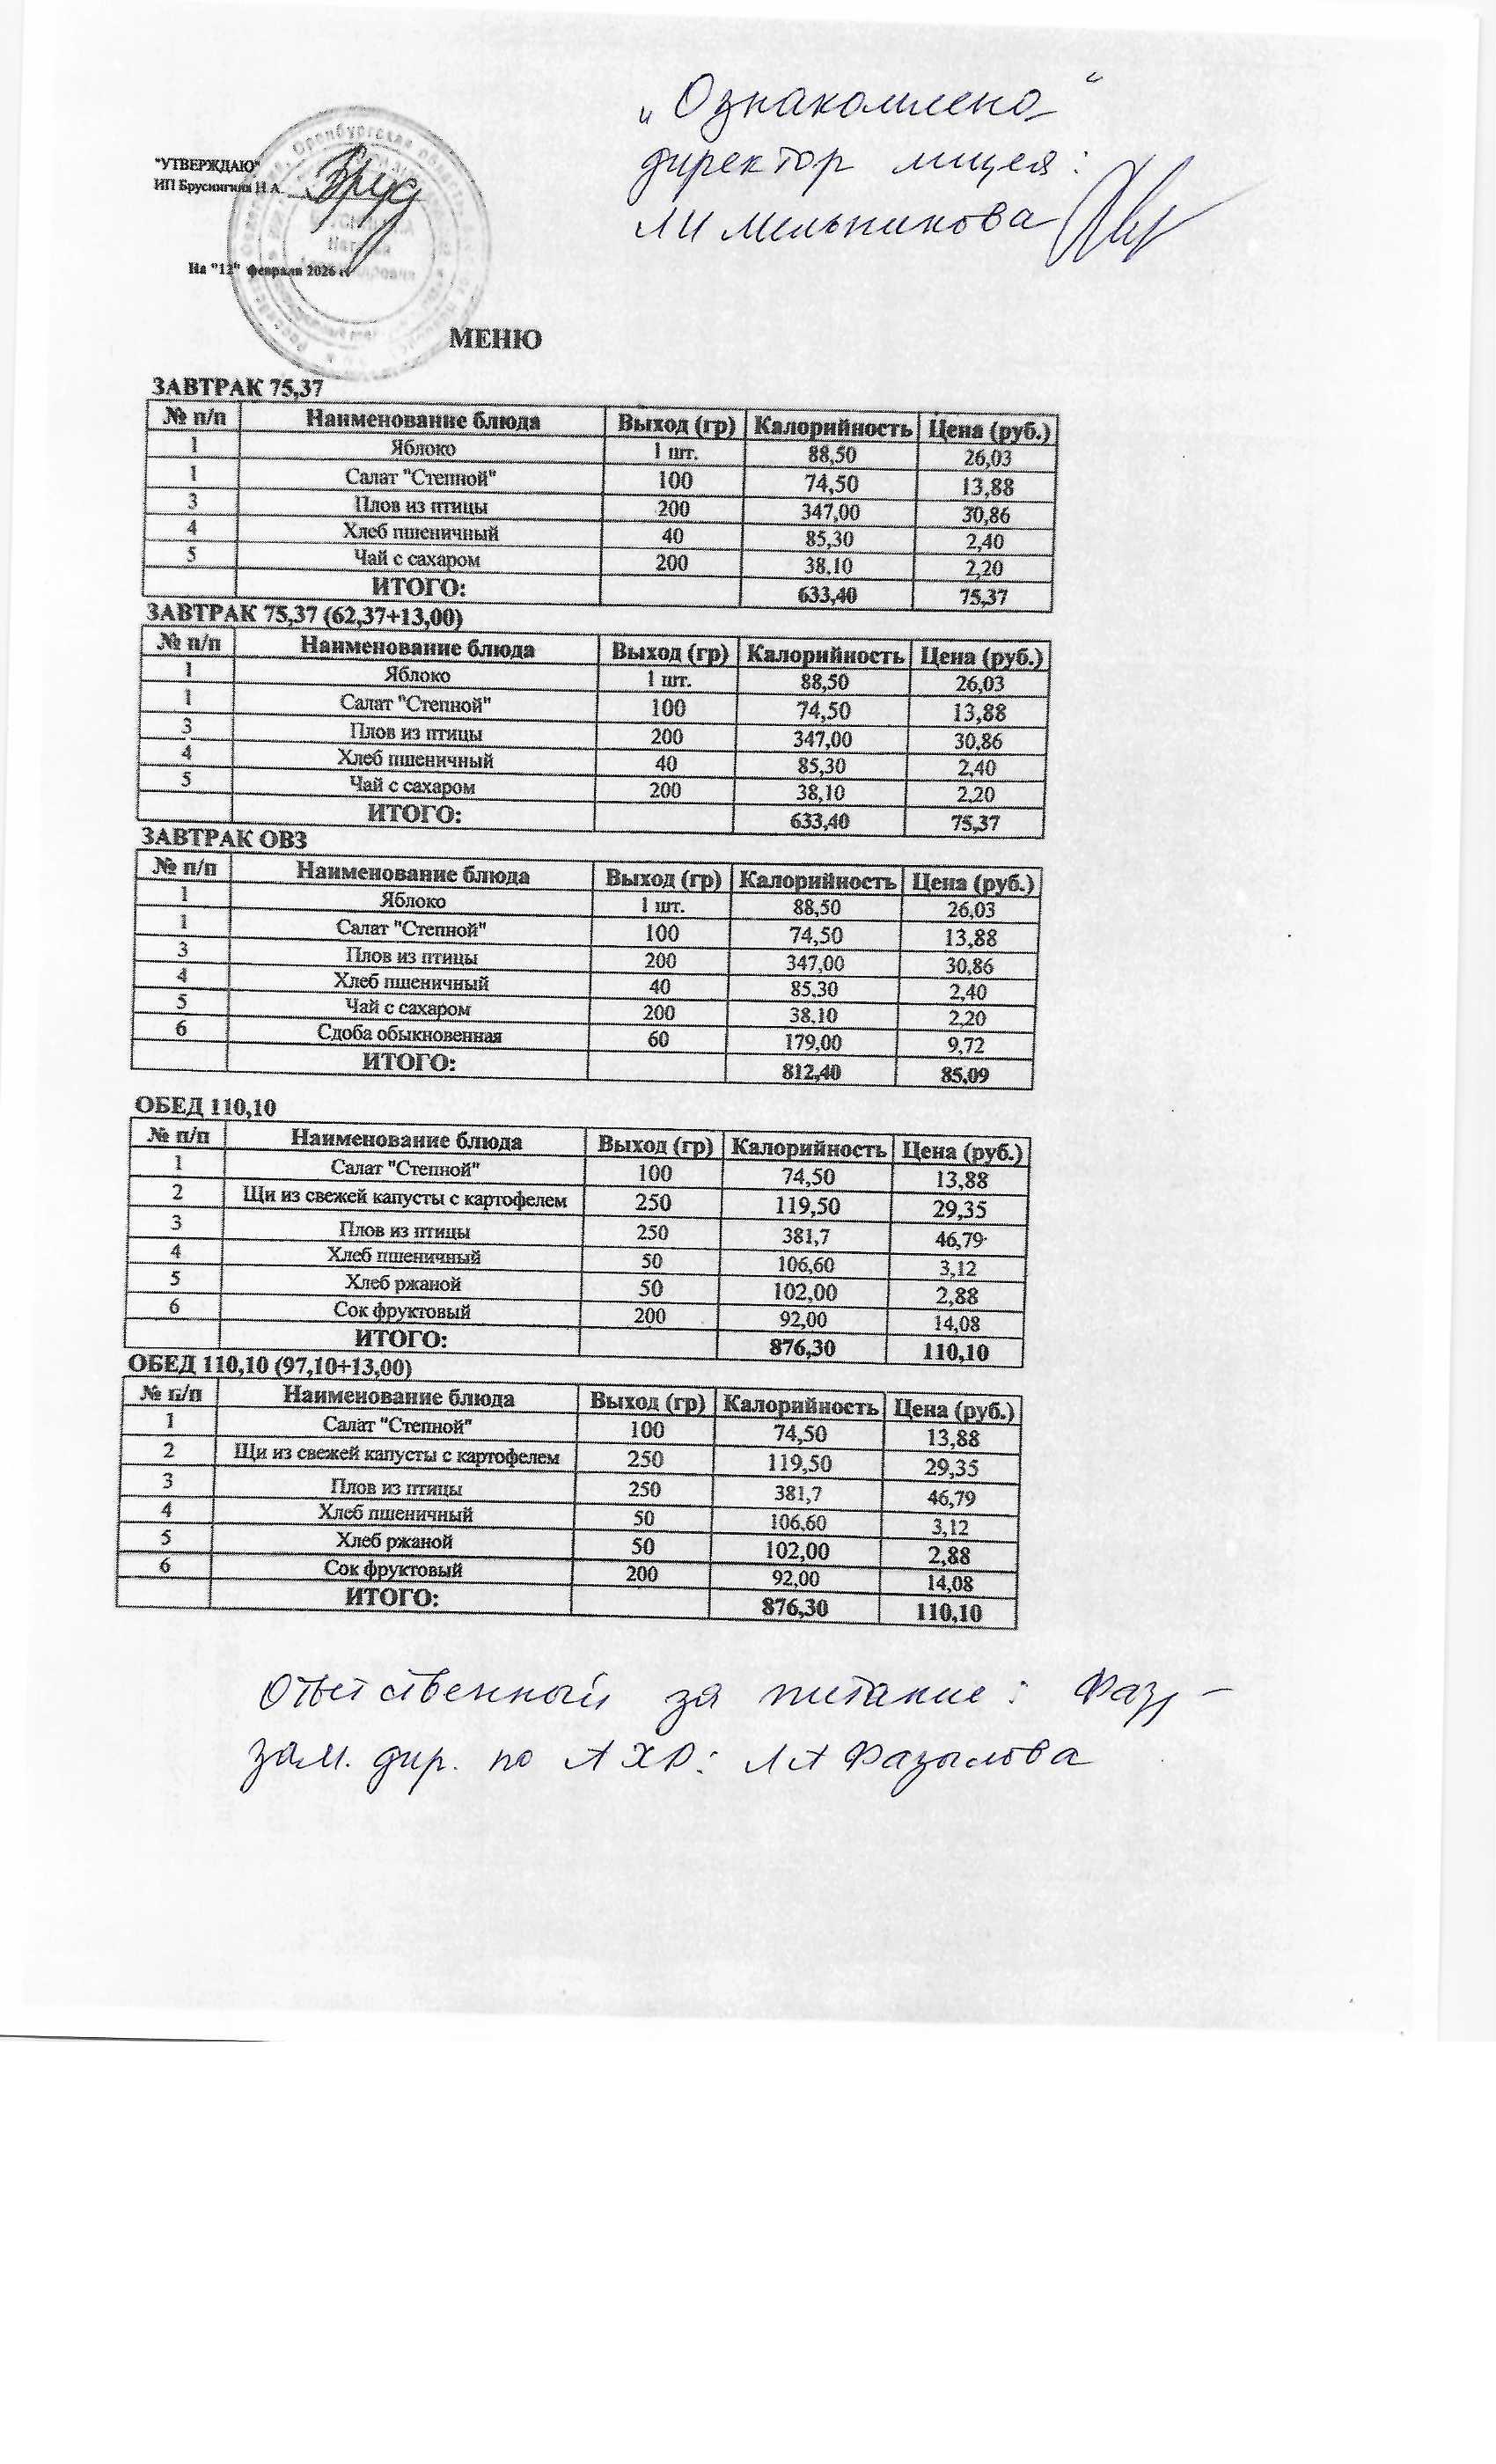 „Ознакомлена“
директор лицея:
ЛИ Мельникова
"УТВЕРЖДАЮ"
ИП Брусингина Н А
На "12" февраля 2026 г
МЕНЮ
ЗАВТРАК 75,37
№ п/п Наименование блюда Выход (гр) Калорийность Цена (руб.)
1 Яблоко 1 шт. 88,50 26,03
1 Салат "Степной" 100 74,50 13,88
3 Плов из птицы 200 347,00 30,86
4 Хлеб пшеничный 40 85,30 2,40
5 Чай с сахаром 200 38,10 2,20
ИТОГО: 633,40 75,37
ЗАВТРАК 75,37 (62,37+13,00)
№ п/п Наименование блюда Выход (гр) Калорийность Цена (руб.)
1 Яблоко 1 шт. 88,50 26,03
1 Салат "Степной" 100 74,50 13,88
3 Плов из птицы 200 347,00 30,86
4 Хлеб пшеничный 40 85,30 2,40
5 Чай с сахаром 200 38,10 2,20
ИТОГО: 633,40 75,37
ЗАВТРАК ОВЗ
№ п/п Наименование блюда Выход (гр) Калорийность Цена (руб.)
1 Яблоко 1 шт. 88,50 26,03
1 Салат "Степной" 100 74,50 13,88
3 Плов из птицы 200 347,00 30,86
4 Хлеб пшеничный 40 85,30 2,40
5 Чай с сахаром 200 38,10 2,20
6 Сдоба обыкновенная 60 179,00 9,72
ИТОГО: 812,40 85,09
ОБЕД 110,10
№ п/п Наименование блюда Выход (гр) Калорийность Цена (руб.)
1 Салат "Степной" 100 74,50 13,88
2 Щи из свежей капусты с картофелем 250 119,50 29,35
3 Плов из птицы 250 381,7 46,79
4 Хлеб пшеничный 50 106,60 3,12
5 Хлеб ржаной 50 102,00 2,88
6 Сок фруктовый 200 92,00 14,08
ИТОГО: 876,30 110,10
ОБЕД 110,10 (97,10+13,00)
№ п/п Наименование блюда Выход (гр) Калорийность Цена (руб.)
1 Салат "Степной" 100 74,50 13,88
2 Щи из свежей капусты с картофелем 250 119,50 29,35
3 Плов из птицы 250 381,7 46,79
4 Хлеб пшеничный 50 106,60 3,12
5 Хлеб ржаной 50 102,00 2,88
6 Сок фруктовый 200 92,00 14,08
ИТОГО: 876,30 110,10
Ответственный за питание:
зам. дир. по АХР: ЛА Фазылова